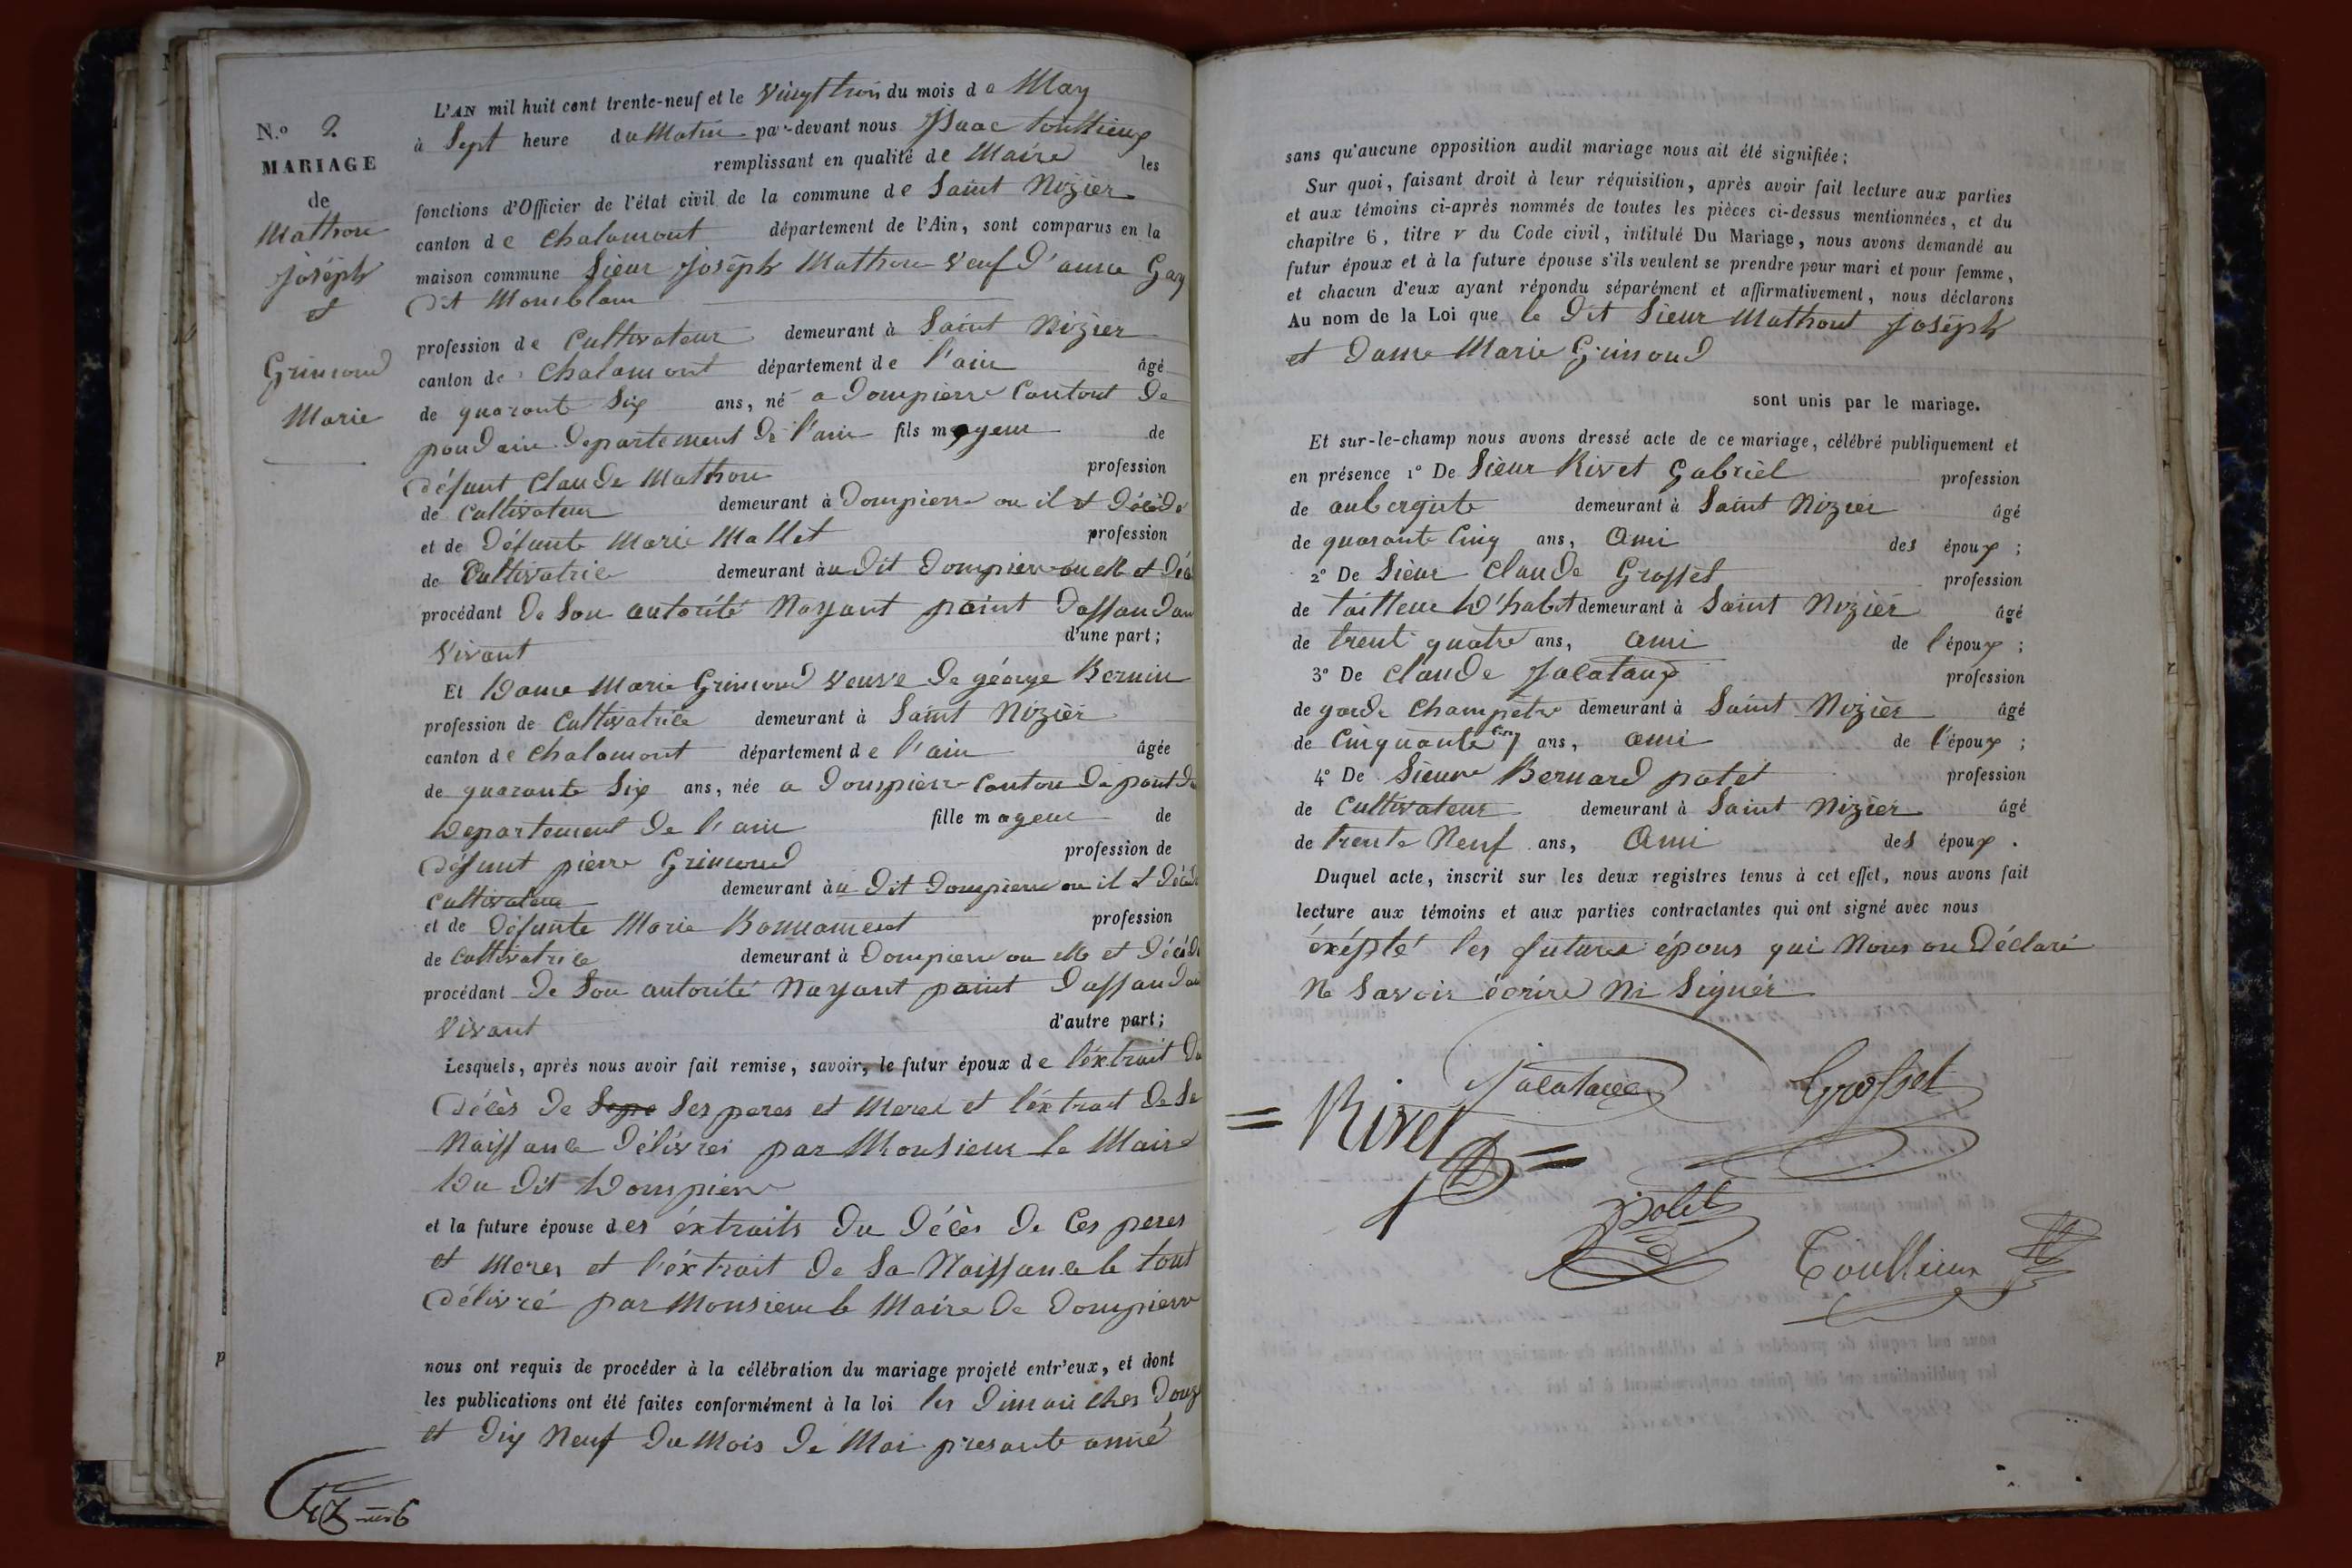 N.o 2.
MARIAGE
de
Mathon
Joséph
et
Grimoud
Marie
L'AN mil huit cent trente-neuf et le vingt trois du mois de May
à Sept heure du Matin par-devant nous Isaac Toullieux
remplissant en qualité de Maire les
fonctions d'Officier de l'état civil de la commune de Saint Nizier
canton de Chalamont département de l'Ain, sont comparus en la
maison commune Sieur Joséph Mathon veuf d'anne Gay
dit Monblan
profession de Cultivateur demeurant à Saint Nizier
canton de Chalamont département de l'ain âgé
de quarante Six ans, né a Dompierre Cantont de
pondain departement de l'ain fils mayeur de
défunt Claude Mathon profession
de Cultivateur demeurant à Dompierre ou il et décédé
et de défunte Marie Mallet profession
de Cultivatrice demeurant àu dit Dompierre ou elle et déc
procédant de Son autorité Nayant point dassandan
vivant d'une part;
Et Dame Marie Grimoud veuve de géorge Bernin
profession de Cultivatrice demeurant à Saint Nizièr
canton de Chalamont département de l'ain âgée
de quarante Six ans, née a Dompièrre Canton de pont d
Departement de l'ain fille mayeur de
défunt pièrre Grimoud profession de
Cultivateur demeurant àu dit Dompierre ou il et décéd
et de défunte Marie Bonnament profession
de Cultivatrice demeurant à Dompierre ou elle et décédé
procédant de Son autorité Nayant point dassandan
vivant d'autre part;
Lesquels, après nous avoir fait remise, savoir, le futur époux de l'éxtrait du
décès de Ses peres et Meres et l'éxtrait de Sa
Naissance délivrés par Monsieur le Maire
Du dit Dompierre
et la future épouse des éxtraits du décès de Ces peres
et Meres et l'éxtrait de Sa Naissance le tout
délivré par Monsieur le Maire de Dompierre
nous ont requis de procéder à la célébration du mariage projeté entr'eux, et dont
les publications ont été faites conformément à la loi les dimanches douze
et dix Neuf du Mois de Mai presante anné
sans qu'aucune opposition audit mariage nous ait été signifiée;
Sur quoi, faisant droit à leur réquisition, après avoir fait lecture aux parties
et aux témoins ci-après nommés de toutes les pièces ci-dessus mentionnées, et du
chapitre 6, titre v du Code civil, intitulé Du Mariage, nous avons demandé au
futur époux et à la future épouse s'ils veulent se prendre pour mari et pour femme,
et chacun d'eux ayant répondu séparément et affirmativement, nous déclarons
Au nom de la Loi que le dit Sieur Mathont Joséph
et dame Marie Grimoud
sont unis par le mariage.
Et sur-le-champ nous avons dressé acte de ce mariage, célébré publiquement et
en présence 1° De Sièur Rivet Gabrièl profession
de aubergiste demeurant à Saint Nizier âgé
de quarante Cinq ans, Ami des époux;
2° De Sièur Claude Grosset profession
de tailleur D'habit demeurant à Saint Nizièr âgé
de trent quatre ans, ami de l'époux;
3° De Claude Jalataux profession
de garde Champetre demeurant à Saint Nizièr âgé
de Cinquante Cinq ans, ami de l'époux;
4° De Sieur Bernard potet profession
de Cultivateur demeurant à Saint Nizièr âgé
de trente Neuf ans, Ami des époux.
Duquel acte, inscrit sur les deux registres tenus à cet effet, nous avons fait
lecture aux témoins et aux parties contractantes qui ont signé avec nous
éxépté les futures épous qui Nous on Déclaré
Ne Savoir écrire Ni Signér
Jalataux
Grosset
= Rivet =
potet
Toullieux